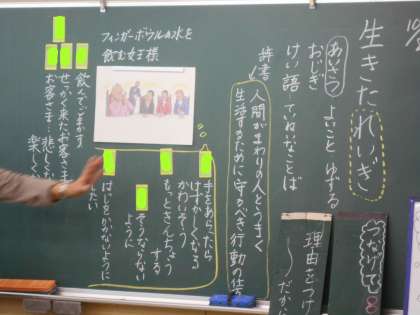 生きたれいぎ
あいさつ よいこと…ゆずる
おじぎ
けい語…ていねいなことば
辞書
人間がまわりの人とうまく
生活するために守るべき行動の仕方
フィンガーボウルの水を
飲む女王様
手をあらったら
はずかしくなる
かわいそう
もっときんちょう
する
そうならない
ように
はじをかかないように
したい
飲んでごまかす
せっかく来たお客さま
お客さま…悲しく
楽しく
つなげて
8
理由をつけ
〜だから